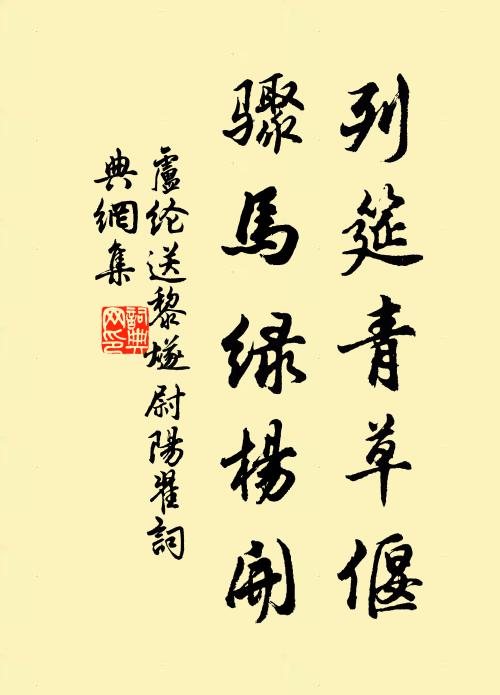 列筵青草偃
骤馬绿楊開
盧纶送黎燧尉陽翟詞
典網集
詞典
网印